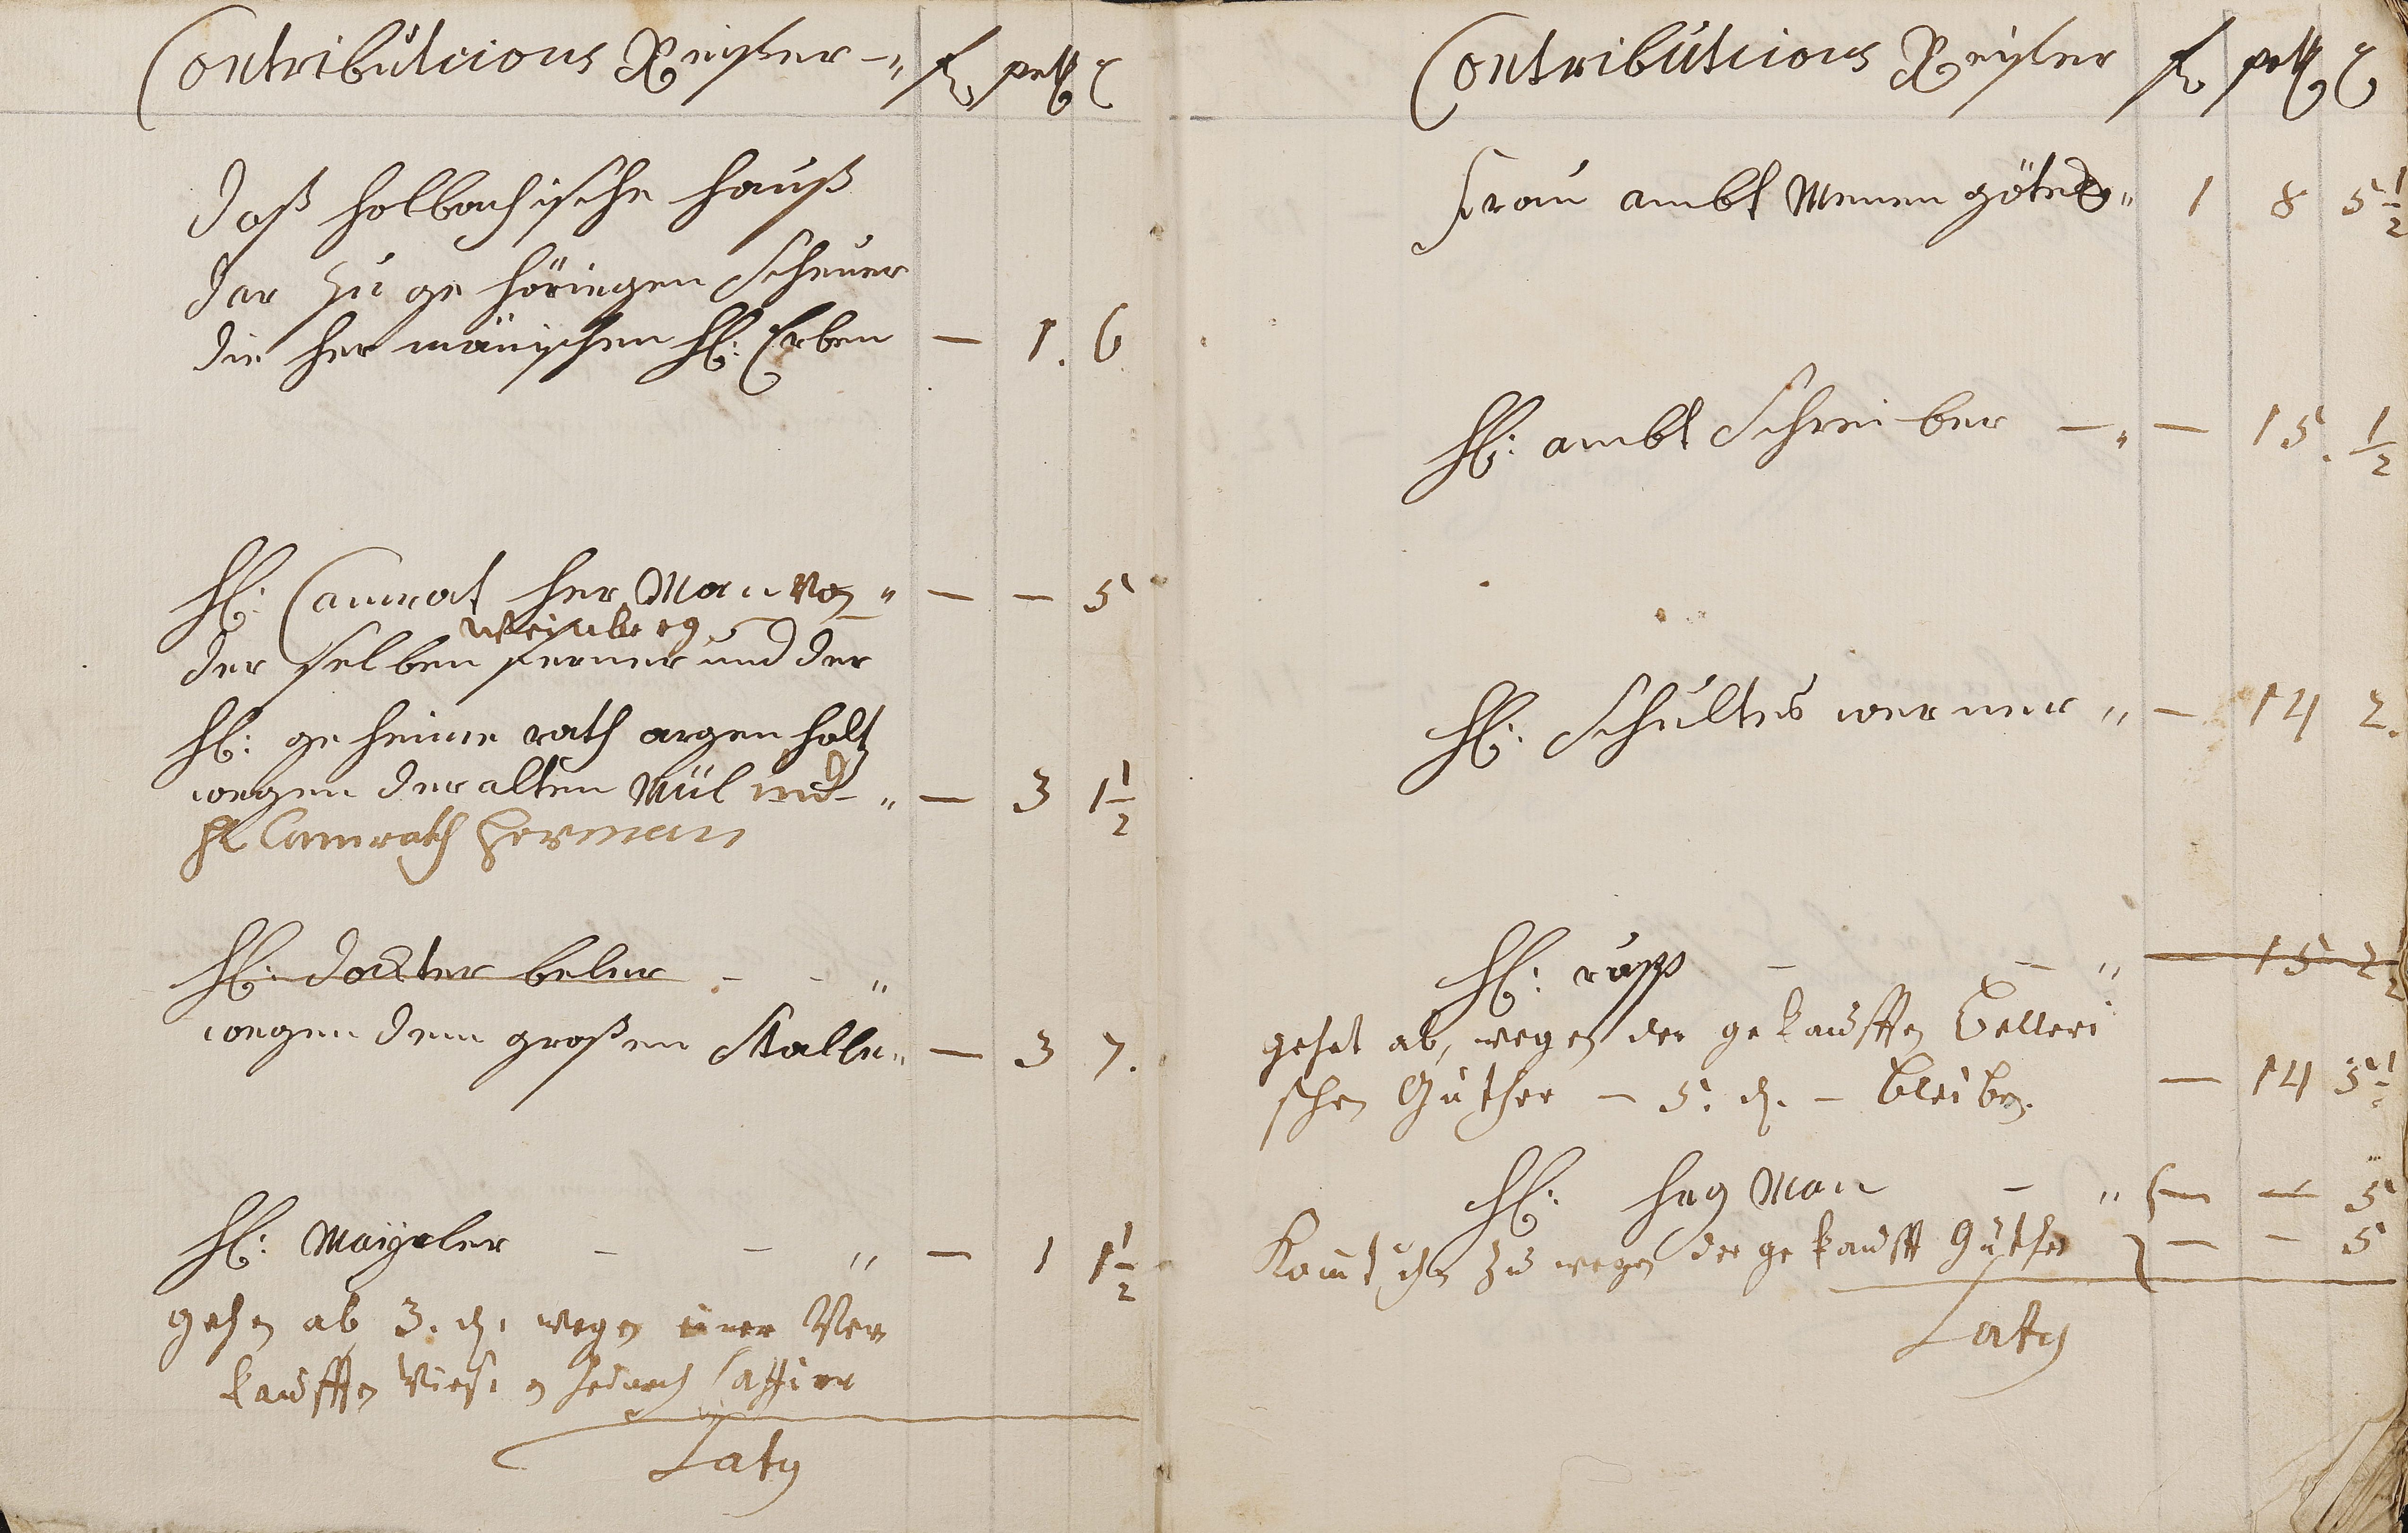 Contributcions Reister fl petz ₰
daß holbachische hauß
dar zu ge höringen Scheuer
die her mänischen H: Erben — 1. 6
H: Camrat her Man von — — 5
weinberg
der selben ferner und der
H: ge heime rath argen holtz
wegen der alten Mül und — 3 1 1/2
H Camrath Herman
H: docter beler
wegen dem großen Stalle — 3 7.
H: Maÿeler — 1 1 1/2
gehen ab 3. ₰. wegen einer Ver
kaufften Wiesen
Laty
Contributcions Reister fl petz ₰
Frau ambt Menen götes 1 8 5 1/2
H: ambt Schrei ber — 15. 1/2
H: Schultes werner — 14 2.
H: rupp — 15 2 1/2
gehet ab, wegen der gekaufften Belleri
schen Güther — 5. ₰. — bleiben. — 14 5 1/2
H: hag Man — — 5
Komt ihm zu wegen der ge kaufft Güther — — 5
Laty